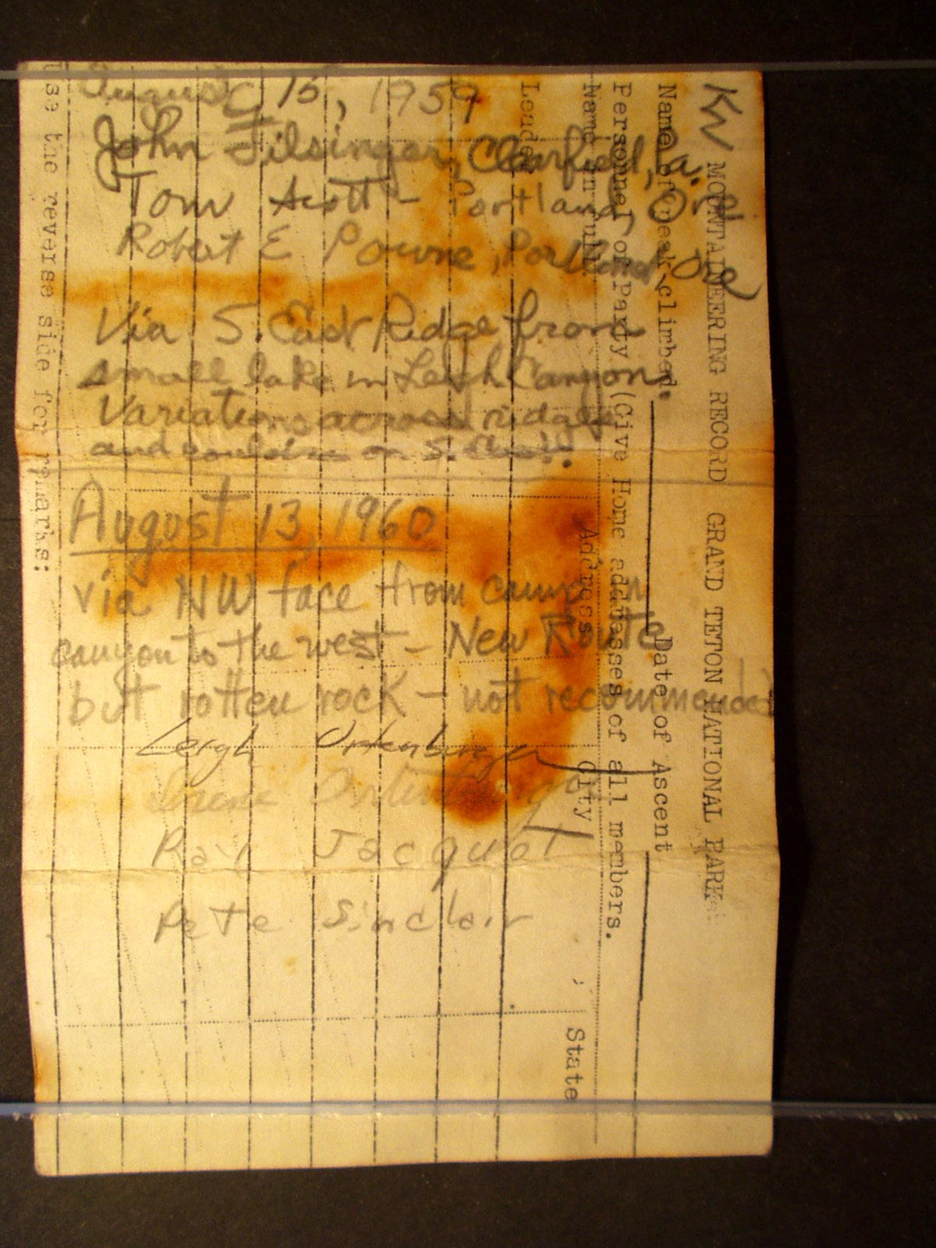 August 15, 1959
John Filsinger, Clearfield, Pa.
Tom Scott - Portland, Ore
Robert E , Portland, Ore
Via S. East Ridge from
small lake in Leigh Canyon.
Variations across ridges
and couloirs on S. East!!
August 13, 1960
via NW face from camp in
canyon to the west - New Route
but rotten rock - not recommended
Leigh Ortenburger
Irene Ortenburger
Ray Jacquot
Pete Sinclair
KW MOUNTAINEERING RECORD GRAND TETON NATIONAL PARK
Name of peak climbed. Date of Ascent
Personnel of Party (Give Home addresses of all members.
Name in full Address City State
Leader
Use the reverse side for remarks: